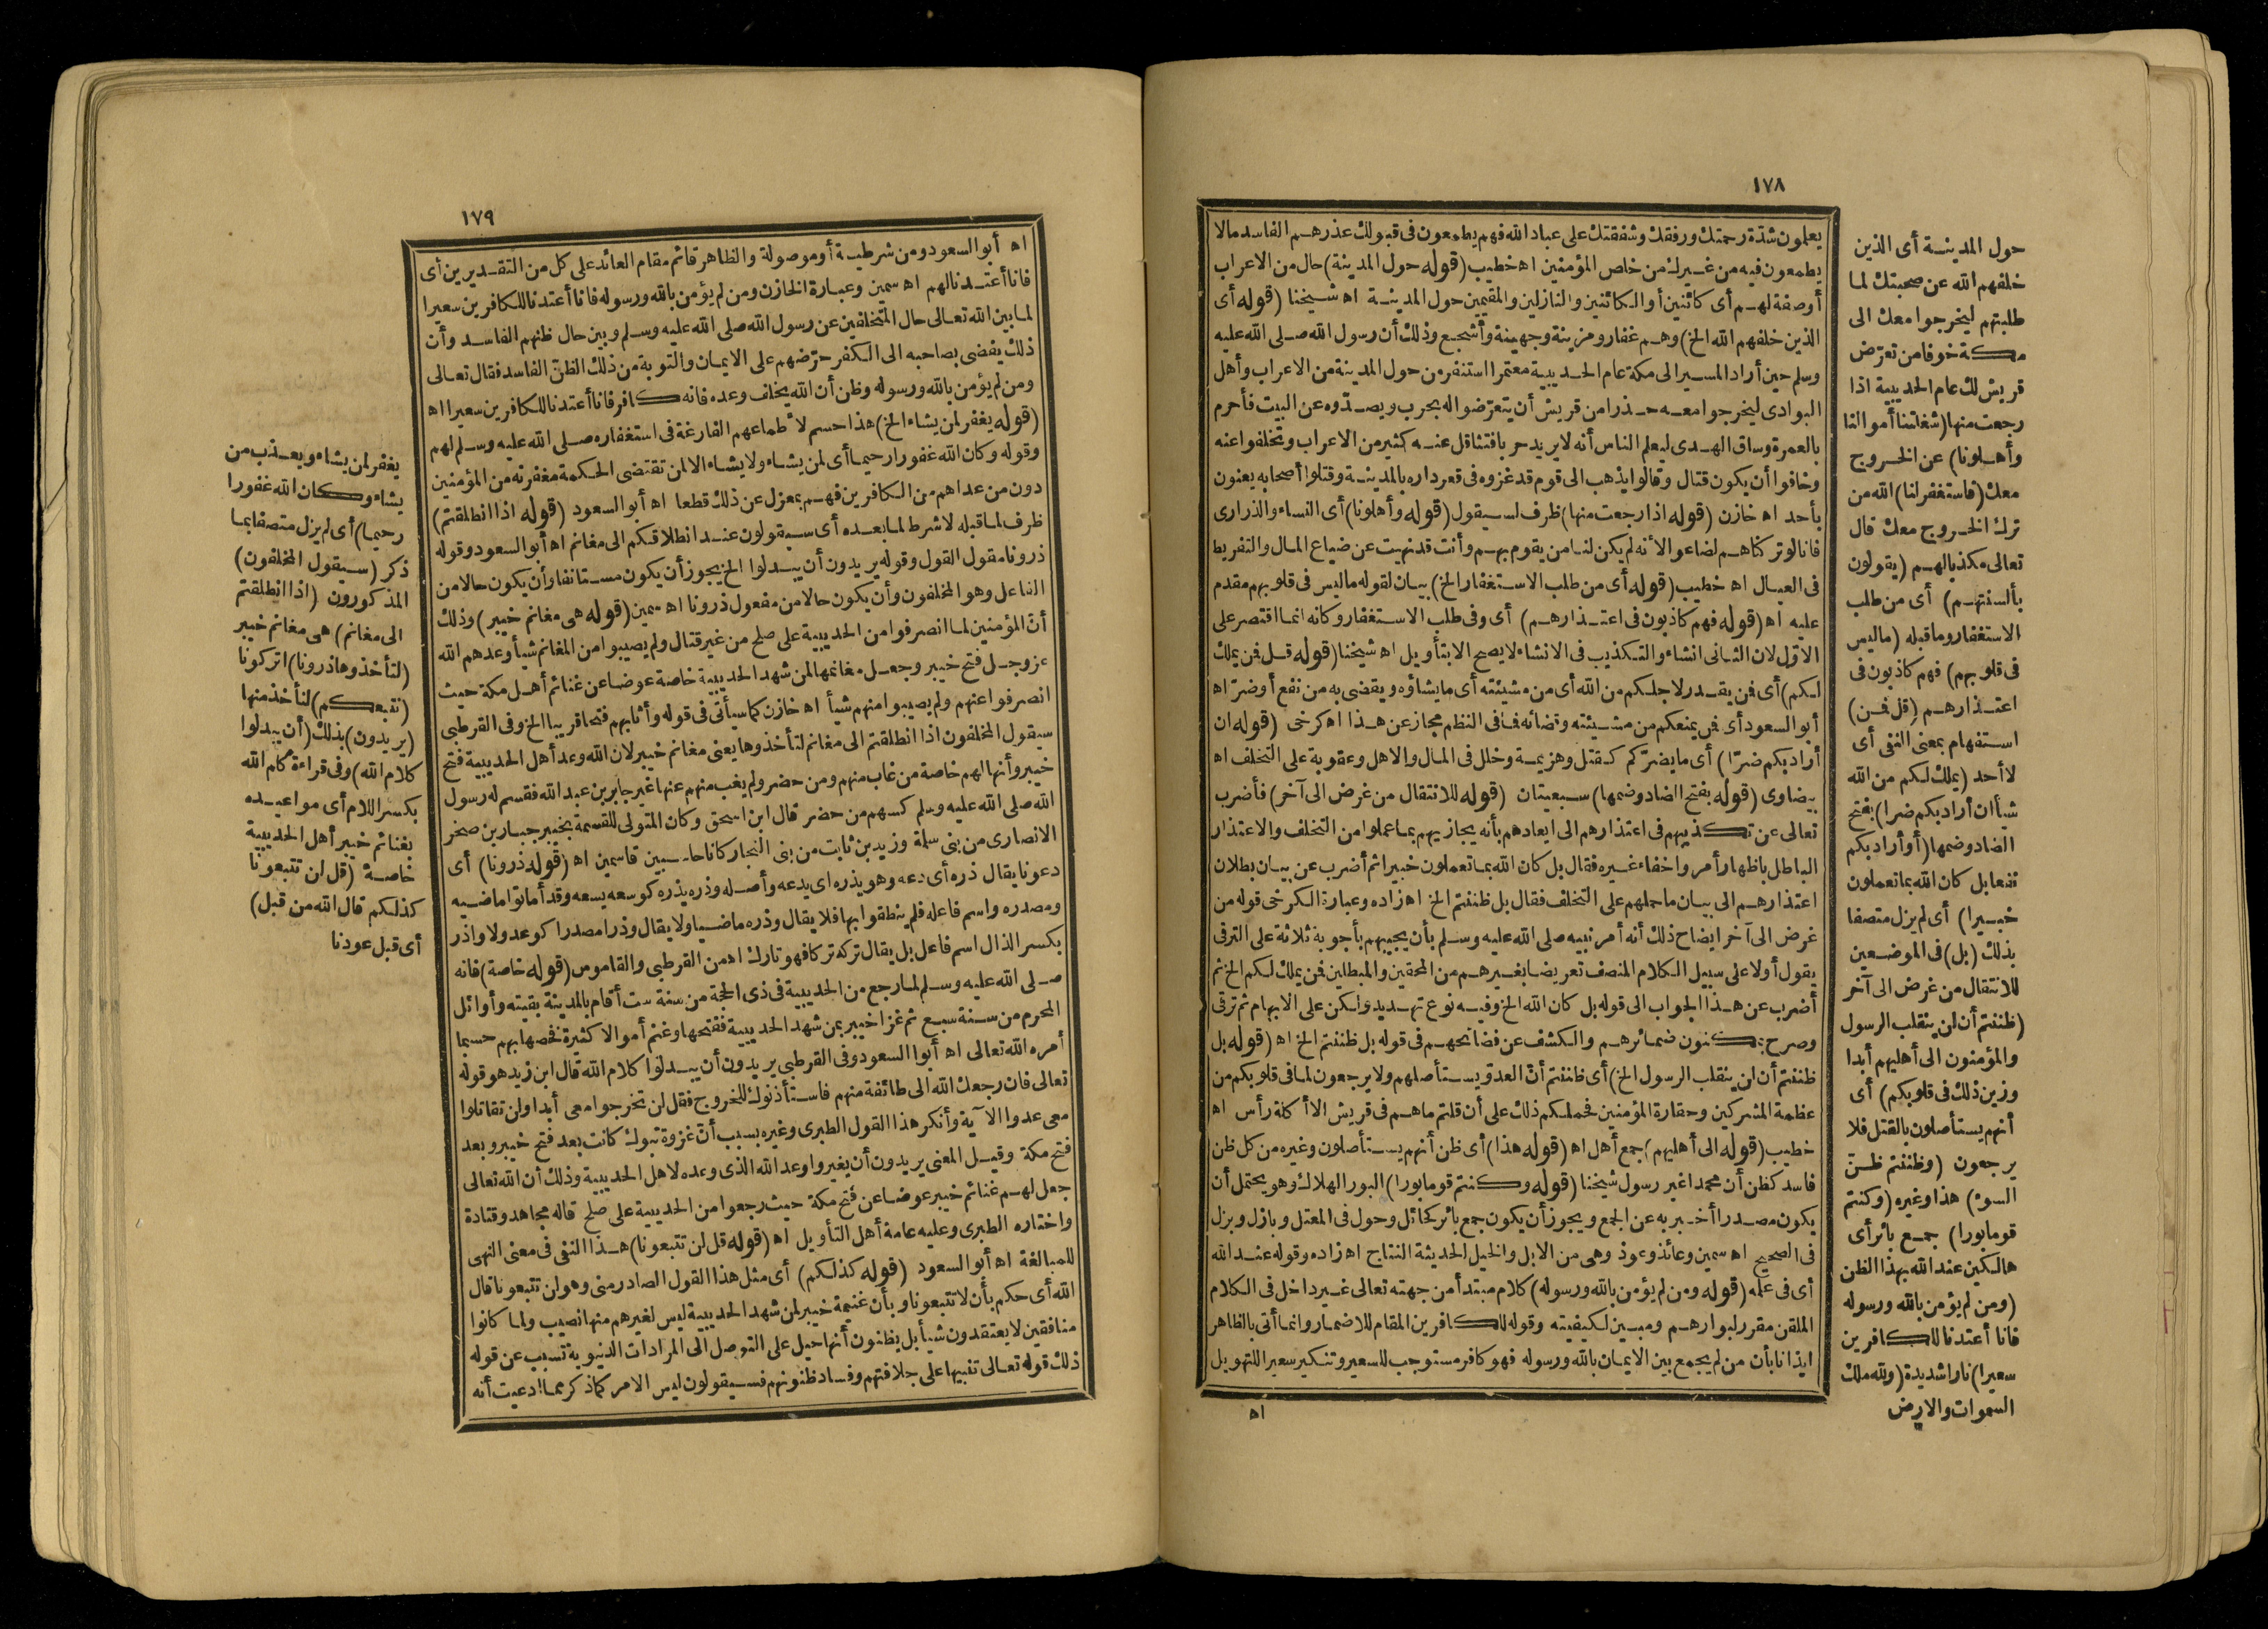 ١٧٨
حول المدينة أى الذين
خلفهم الله عن صحبتك لما
طلبتهم ليخرجوا معك الى
مكة خوفا من تعرّض
قريش لك عام الحديبية اذا
رجعت منها (شغلتنا أموالنا
وأهلونا) عن الخروج
معك (فاستغفر لنا) الله من
ترك الخروج معك قال
تعالى مكذبا لهم (يقولون
بألسنتهم) أى من طلب
الاستغفار وما قبله (ما ليس
فى قلوبهم) فهم كاذبون فى
اعتذارهم (قل فمن)
استفهام بمعنى النفى أى
لا أحد (يملك لكم من الله
شيأ ان أراد بكم ضرا) بفتح
الضاد وضمها (أو أراد بكم
نفعا بل كان الله بما تعملون
خبيرا) أى لم يزل متصفا
بذلك (بل) فى الموضعين
للانتقال من غرض الى آخر
(ظننتم أن لن ينقلب الرسول
والمؤمنون الى أهليهم أبدا
وزين ذلك فى قلوبكم) أى
أنهم يستأصلون بالقتل فلا
يرجعون (وظننتم ظنّ
السوء) هذا وغيره (وكنتم
قوما بورا) جمع بائر أى
هالكين عند الله بهذا الظن
(ومن لم يؤمن بالله ورسوله
فانا أعتدنا للكافرين
سعيرا) نارا شديدة (ولله ملك
السموات والارض
يعلمون شدّة رحمتك ورفقك وشفقتك على عباد الله فهم يطمعون فى قبولك عذرهم الفاسد مالا
يطمعون فيه من غيرك من خاص المؤمنين اه خطيب (قوله حول المدينة) حال من الاعراب
أو صفة لهم أى كائنين أو الكائنين والنازلين والمقيمين حول المدينة اه شيخنا (قوله أى
الذين خلفهم الله الخ) وهم غفار ومزينة وجهينة وأشجع وذلك أن رسول الله صلى الله عليه
وسلم حين أراد المسير الى مكة عام الحديبية معتمرا استنفر من حول المدينة من الاعراب وأهل
البوادى ليخرجوا معه حذرا من قريش أن يتعرّضوا له بحرب ويصدّوه عن البيت فأحرم
بالعمرة وساق الهدى ليعلم الناس أنه لا يريد حربا فتثاقل عنه كثير من الاعراب وتخلفوا عنه
وخافوا أن يكون قتال وقالوا يذهب الى قوم قد غزوه فى قعر داره بالمدينة وقتلوا أصحابه يعنون
بأحد اه خازن (قوله اذا رجعت منها) ظرف لسيقول (قوله وأهلونا) أى النساء والذرارى
فانا لو تركناهم لضاعوا لأنه لم يكن لنا من يقوم بهم وأنت قد نهيت عن ضياع المال والتفريط
فى العيال اه خطيب (قوله أى من طلب الاستغفار الخ) بيان لقوله ما ليس فى قلوبهم مقدم
عليه اه (قوله فهم كاذبون فى اعتذارهم) أى وفى طلب الاستغفار وكانه انما اقتصر على
الاوّل لان الثانى انشاء والتكذيب فى الانشاء لا يصح الا بتأويل اه شيخنا (قوله قل فمن يملك
لكم) أى فمن يقدر لاجلكم من الله أى من مشيئته أى ما يشاؤه ويقضى به من نفع أو ضرّ اه
أبو السعود أى فمن يمنعكم من مشيئته وقضائه فما فى النظم مجاز عن هذا اه كرخى (قوله ان
أراد بكم ضرّا) أى ما يضرّكم كقتل وهزيمة وخلل فى المال والاهل وعقوبة على التخلف اه
بيضاوى (قوله بفتح الضاد وضمها) سبعيتان (قوله للانتقال من غرض الى آخر) فأضرب
تعالى عن تكذيبهم فى اعتذارهم الى ايعادهم بأنه يجازيهم بما عملوا من التخلف والاعتذار
الباطل باظهار أمر واخفاء غيره فقال بل كان الله بما تعملون خبيرا ثم أضرب عن بيان بطلان
اعتذارهم الى بيان ما حملهم على التخلف فقال بل ظننتم الخ اه زاده وعبارة الكرخى قوله من
غرض الى آخر ايضاح ذلك أنه أمر نبيه صلى الله عليه وسلم بأن يجيبهم بأجوبة ثلاثة على الترقى
يقول أولا على سبيل الكلام المنصف تعريضا بغيرهم من المحقين والمبطلين فمن يملك لكم الخ ثم
أضرب عن هذا الجواب الى قوله بل كان الله الخ وفيه نوع تهديد ولكن على الابهام ثم ترقى
وصرح بمكنون ضمائرهم والكشف عن فضائحهم فى قوله بل ظننتم الخ اه (قوله بل
ظننتم أن لن ينقلب الرسول الخ) أى ظننتم أنّ العدوّ يستأصلهم ولا يرجعون لما فى قلوبكم من
عظمة المشركين وحقارة المؤمنين فحملكم ذلك على أن قلتم ما هم فى قريش الا أكلة رأس اه
خطيب (قوله الى أهليهم) جمع أهل اه (قوله هذا) أى ظن أنهم يستأصلون وغيره من كل ظن
فاسد كظن أن محمدا غير رسول شيخنا (قوله وكنتم قوما بورا) البور الهلاك وهو يحتمل أن
يكون مصدرا أخبر به عن الجمع ويجوز أن يكون جمع بائر كحائل وحول فى المعتل وبازل وبزل
فى الصحيح اه سمين وعائذ وعوذ وهى من الابل والخيل الحديثة النتاج اه زاده وقوله عند الله
أى فى علمه (قوله ومن لم يؤمن بالله ورسوله) كلام مبتدأ من جهته تعالى غير داخل فى الكلام
الملقن مقرر لبوارهم ومبين لكيفيته وقوله للكافرين المقام للاضمار وانما أتى بالظاهر
ايذانا بأن من لم يجمع بين الايمان بالله ورسوله فهو كافر مستوجب للسعير وتنكير سعيرا للتهويل
اه
١٧٩
اه أبو السعود ومن شرطية أو موصولة والظاهر قائم مقام العائد على كل من التقديرين أى
فانا أعتدنا لهم اه سمين وعبارة الخازن ومن لم يؤمن بالله ورسوله فانا أعتدنا للكافرين سعيرا
لما بين الله تعالى حال المتخلفين عن رسول الله صلى الله عليه وسلم وبين حال ظنهم الفاسد وأن
ذلك يفضى بصاحبه الى الكفر حرّضهم على الايمان والتوبة من ذلك الظنّ الفاسد فقال تعالى
ومن لم يؤمن بالله ورسوله وظن أن الله يخلف وعده فانه كافر فانا أعتدنا للكافرين سعيرا اه
(قوله يغفر لمن يشاء الخ) هذا حسم لأطماعهم الفارغة فى استغفاره صلى الله عليه وسلم لهم
وقوله وكان الله غفورا رحيما أى لمن يشاء ولا يشاء الا لمن تقتضى الحكمة مغفرته من المؤمنين
دون من عداهم من الكافرين فهم بمعزل عن ذلك قطعا اه أبو السعود (قوله اذا انطلقتم)
ظرف لما قبله لا شرط لما بعده أى سيقولون عند انطلاقكم الى مغانم اه أبو السعود وقوله
ذرونا مقول القول وقوله يريدون أن يبدلوا الخ يجوز أن يكون مستأنفا وأن يكون حالا من
الفاعل وهو المخلفون وأن يكون حالا من مفعول ذرونا اه سمين (قوله هى مغانم خيبر) وذلك
أنّ المؤمنين لما انصرفوا من الحديبية على صلح من غير قتال ولم يصيبوا من المغانم شيأ وعدهم الله
عز وجل فتح خيبر وجعل مغانمها لمن شهد الحديبية خاصة عوضا عن غنائم أهل مكة حيث
انصرفوا عنهم ولم يصيبوا منهم شيأ اه خازن كما سيأتى فى قوله وأثابهم فتحا قريبا الخ وفى القرطبى
سيقول المخلفون اذا انطلقتم الى مغانم لتأخذوها يعنى مغانم خيبر لان الله وعد أهل الحديبية فتح
خيبر وأنها لهم خاصة من غاب منهم ومن حضر ولم يغب منهم عنها غير جابر بن عبد الله فقسم له رسول
الله صلى الله عليه وسلم كسهم من حضر قال ابن اسحق وكان المتولى للقسمة بخيبر جبار بن صخر
الانصارى من بنى سلمة وزيد بن ثابت من بنى النجار كانا حاسبين قاسمين اه (قوله ذرونا) أى
دعونا يقال ذره أى دعه وهو يذره اى يدعه وأصله وذره يذره كوسعه يسعه وقد أماتوا ماضيه
ومصدره واسم فاعله فلم ينطقوا بها فلا يقال وذره ماضيا ولا يقال وذرا مصدرا كوعد ولا واذر
بكسر الذال اسم فاعل بل يقال تركه تركا فهو تارك اه من القرطبى والقاموس (قوله خاصة) فانه
صلى الله عليه وسلم لما رجع من الحديبية فى ذى الحجة من سنة ست أقام بالمدينة بقيته وأوائل
المحرم من سنة سبع ثم غزا خيبر بمن شهد الحديبية ففتحها وغنم أموالا كثيرة فخصها بهم حسبما
أمره الله تعالى اه أبوا السعود وفى القرطبى يريدون أن يبدلوا كلام الله قال ابن زيد هو قوله
تعالى فان رجعك الله الى طائفة منهم فاستأذنوك للخروج فقل لن تخرجوا معى أبدا ولن تقاتلوا
معى عدوا الآية وأنكر هذا القول الطبرى وغيره بسبب أنّ غزوة تبوك كانت بعد فتح خيبر وبعد
فتح مكة وقيل المعنى يريدون أن يغيروا وعد الله الذى وعده لاهل الحديبية وذلك أن الله تعالى
جعل لهم غنائم خيبر عوضا عن فتح مكة حيث رجعوا من الحديبية على صلح قاله مجاهد وقتادة
واختاره الطبرى وعليه عامة أهل التأويل اه (قوله قل لن تتبعونا) هذا النفى فى معنى النهى
للمبالغة اه أبو السعود (قوله كذلكم) أى مثل هذا القول الصادر منى وهو لن تتبعونا قال
الله أى حكم بأن لا تتبعونا وبأن غنيمة خيبر لمن شهد الحديبية ليس لغيرهم منها نصيب ولما كانوا
منافقين لا يعتقدون شيأ بل يظنون أنها حيل على التوصل الى المرادات الدنيوية تسبب عن قوله
ذلك قوله تعالى تنبيها على جلافتهم وفساد ظنونهم فسيقولون ليس الامر كما ذكر مما ادعيت أنه
يغفر لمن يشاء ويعذب من
يشاء وكان الله غفورا
رحيما) أى لم يزل متصفا بما
ذكر (سيقول المخلفون)
المذكورون (اذا انطلقتم
الى مغانم) هى مغانم خيبر
(لتأخذوها ذرونا) اتركونا
(نتبعكم) لنأخذ منها
(يريدون) بذلك (أن يبدلوا
كلام الله) وفى قراءة كلم الله
بكسر اللام أى مواعيده
بغنائم خيبر أهل الحديبية
خاصة (قل لن تتبعونا
كذلكم قال الله من قبل)
أى قبل عودنا